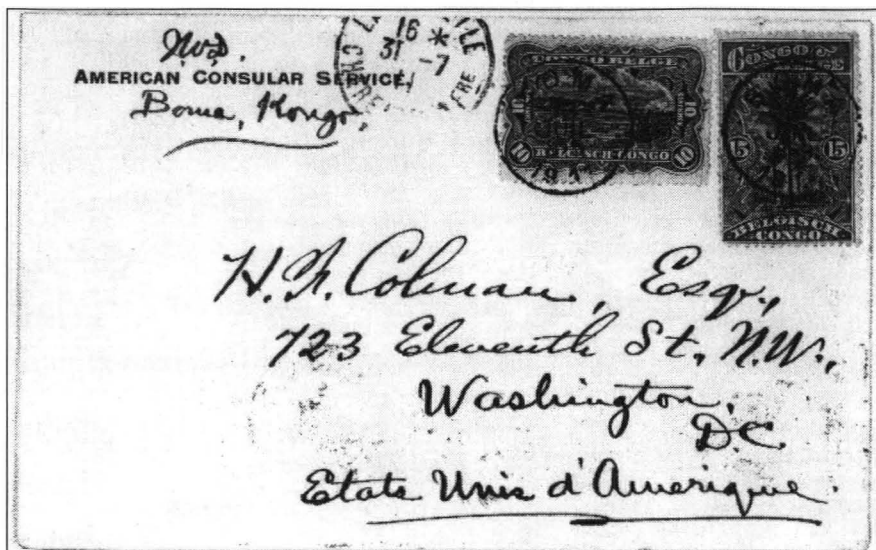 AMERICAN CONSULAR SERVICE,
Boma, Kongo,
16
31 -7
CONGO BELGE
10 10
10 10
BELGISCH CONGO
CONGO BELGE
15 15
BELGISCH
CONGO
H. F. Colman, Esqr.,
723 Eleventh St., N.W.,
Washington,
D.C.
Etats Unis d'Amerique.